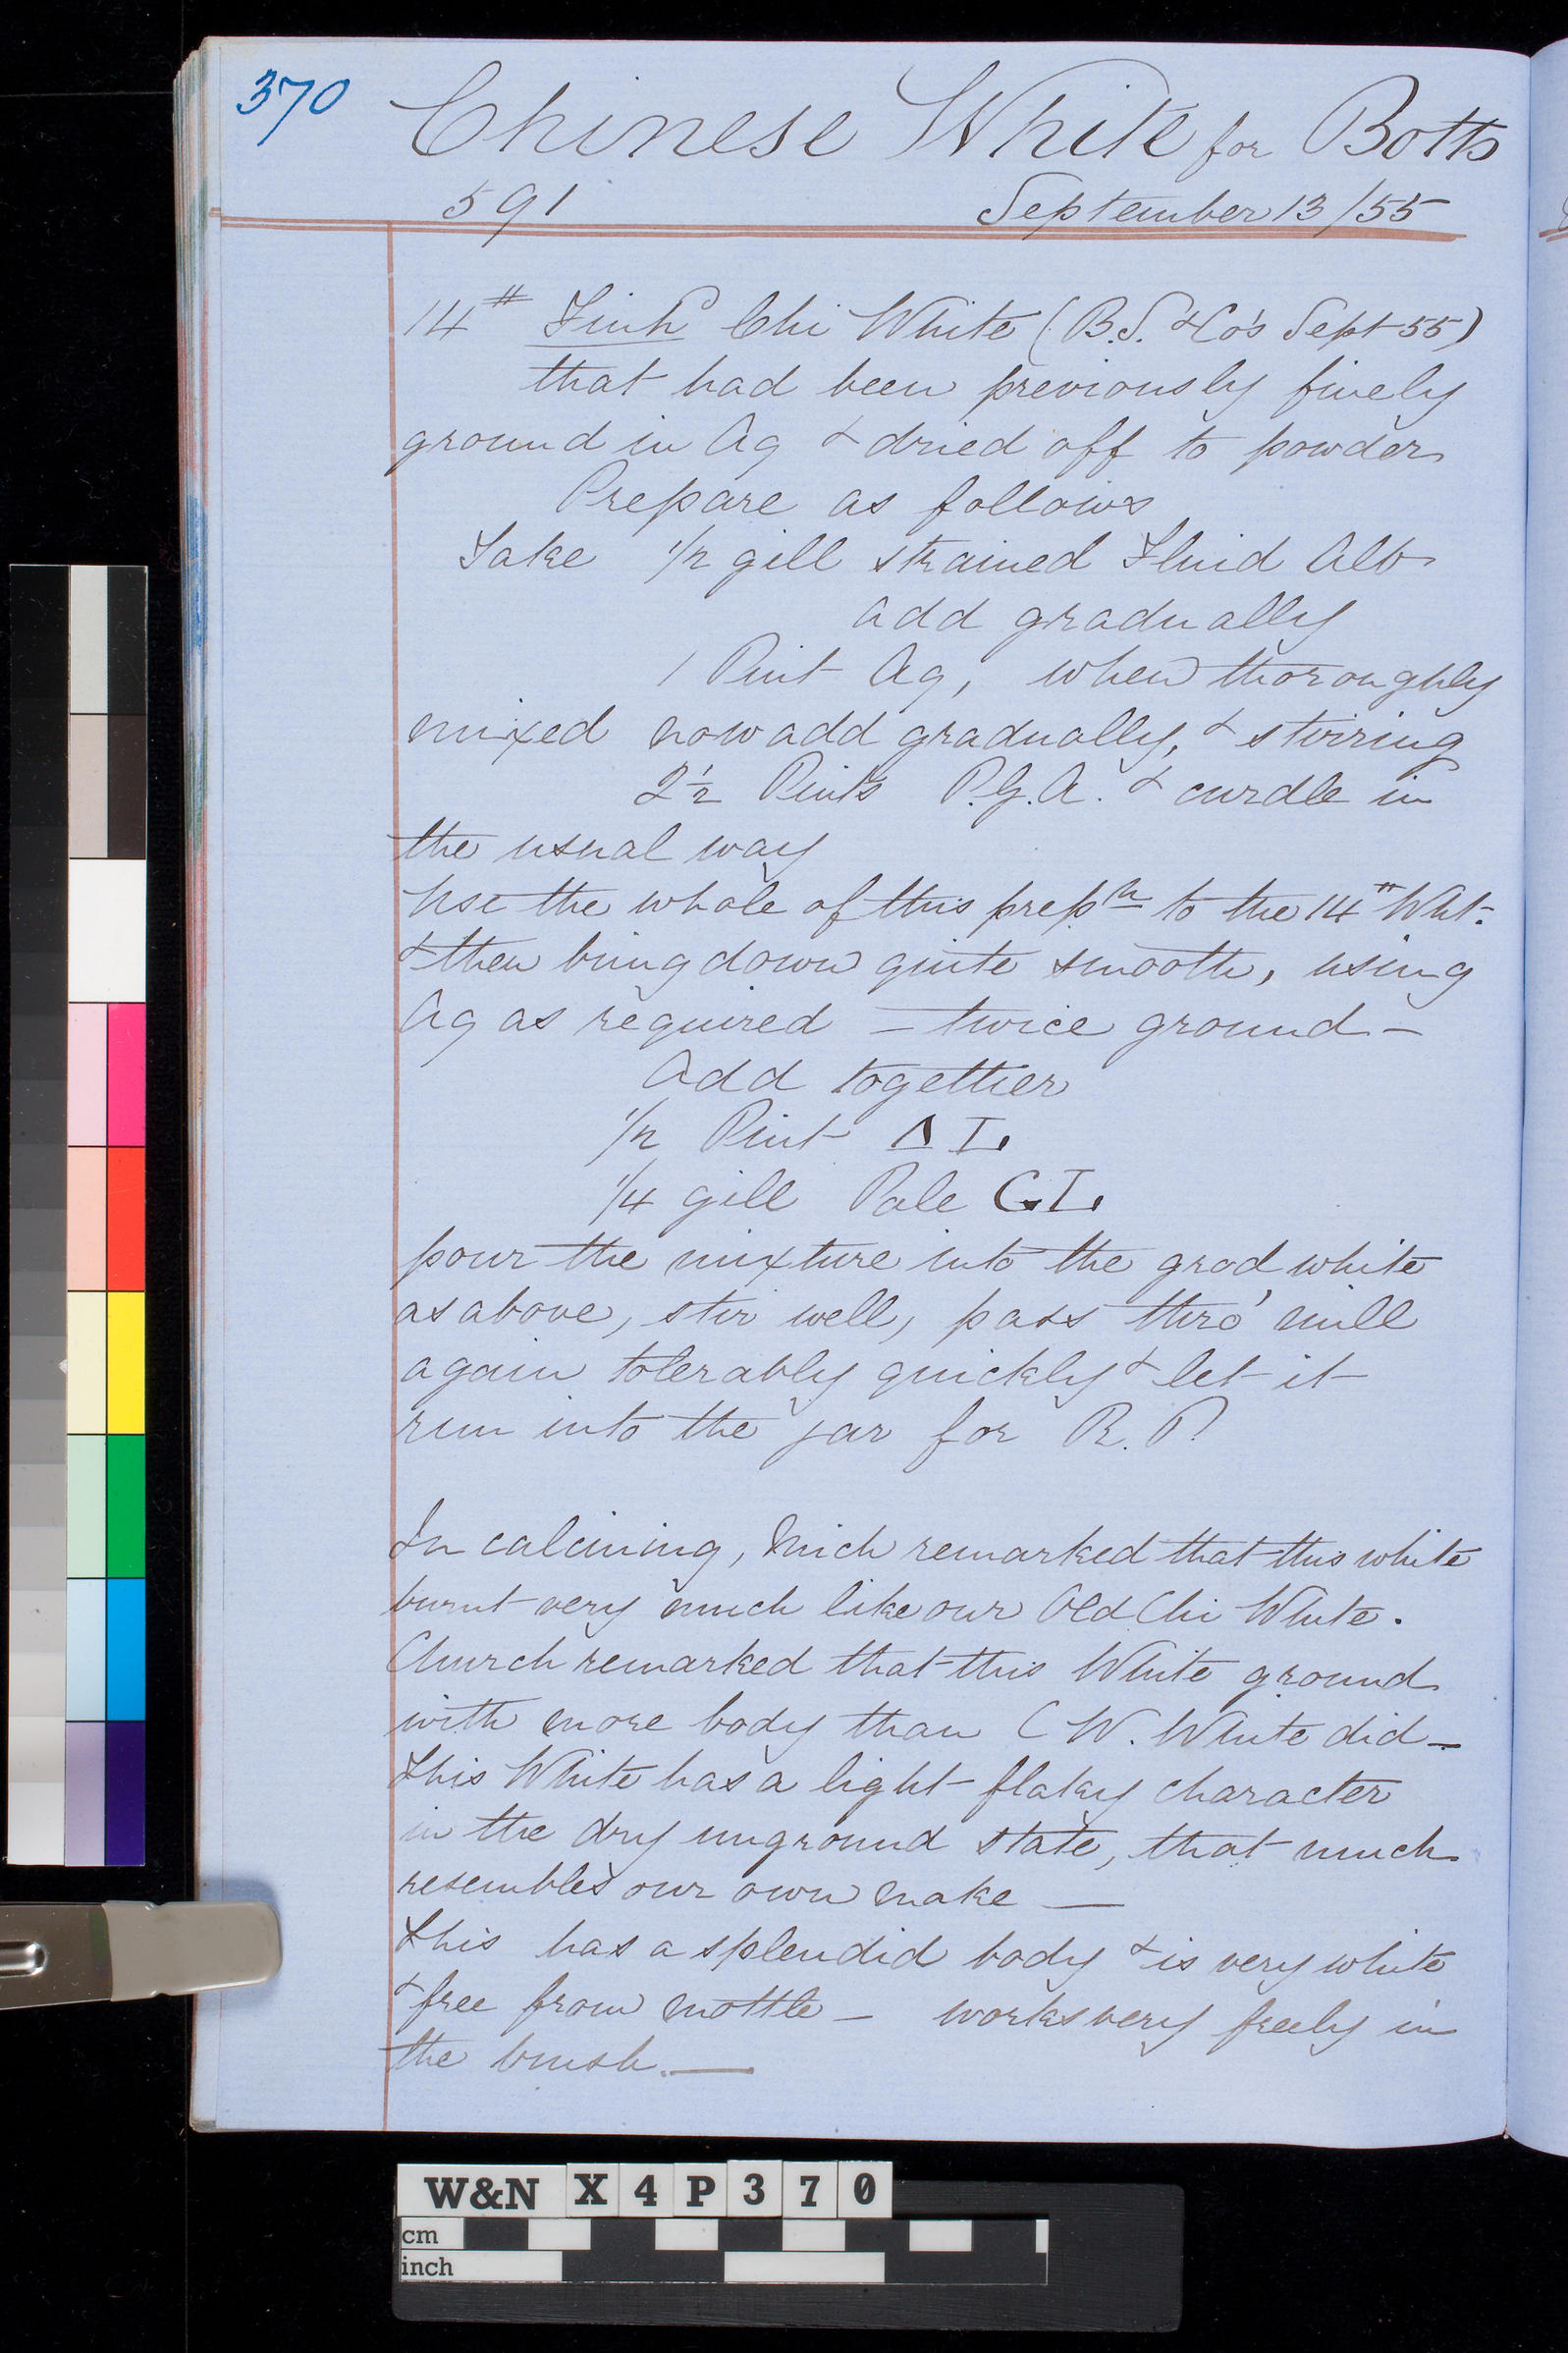 370
Chinese White for Botts
591 September 13/55
14# Finh^d Chi White (B.S. & Co's Sept 55)
that had been previously finely
ground in Aq & dried off to powder
Prepare as follows
Take 1/2 gill strained Fluid Alb
add gradually
1 Pint Aq, when thoroughly
mixed now add gradually, & stirring
2 1/2 Pints P.G.A. & curdle in
the usual way
Use the whole of this prep^n to the 14# Wht.
& then bring down quite smooth, using
Aq as required – twice ground –
Add together
1/2 Pint Δ L.
1/4 gill Pale GL.
pour the mixture into the grod white
as above, stir well, pass thro' mill
again tolerably quickly & let it
run into the jar for R.P.
In calcining, Mich remarked that this white
burnt very much like our Old Chi White.
Church remarked that this White ground
with more body than C W. White did –
This White has a light flaky character
in the dry unground state, that much
resembles our own make —
This has a splendid body & is very white
& free from mottle – works very freely in
the brush. —
W&N X4P370
cm
inch